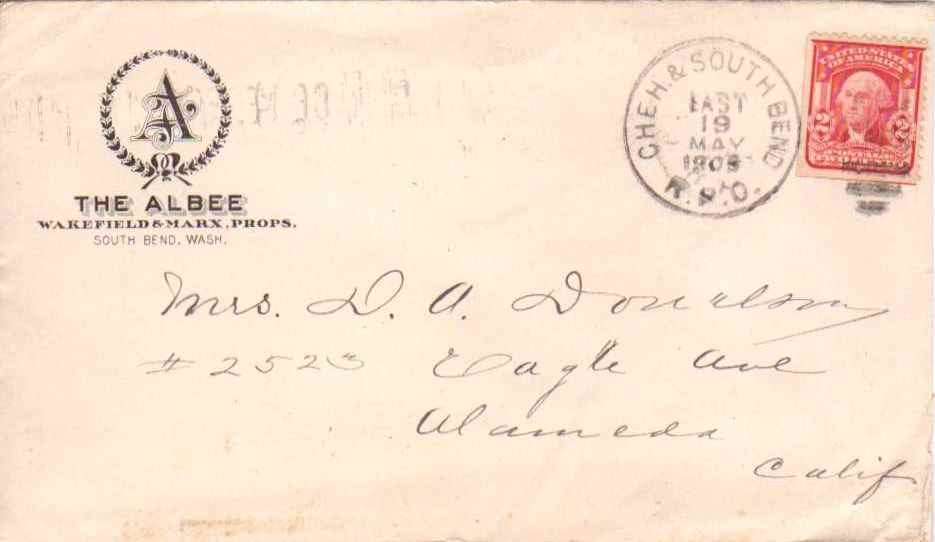 A
THE ALBEE
WAKEFIELD & MARX, PROPS.
SOUTH BEND, WASH.
CHEH. & SOUTH BEND
EAST
19
MAY
R.P.O.
UNITED STATES
OF AMERICA
2 2
Mrs. D. A. Donalson
# 2523 Eagle Ave
Alameda
Calif